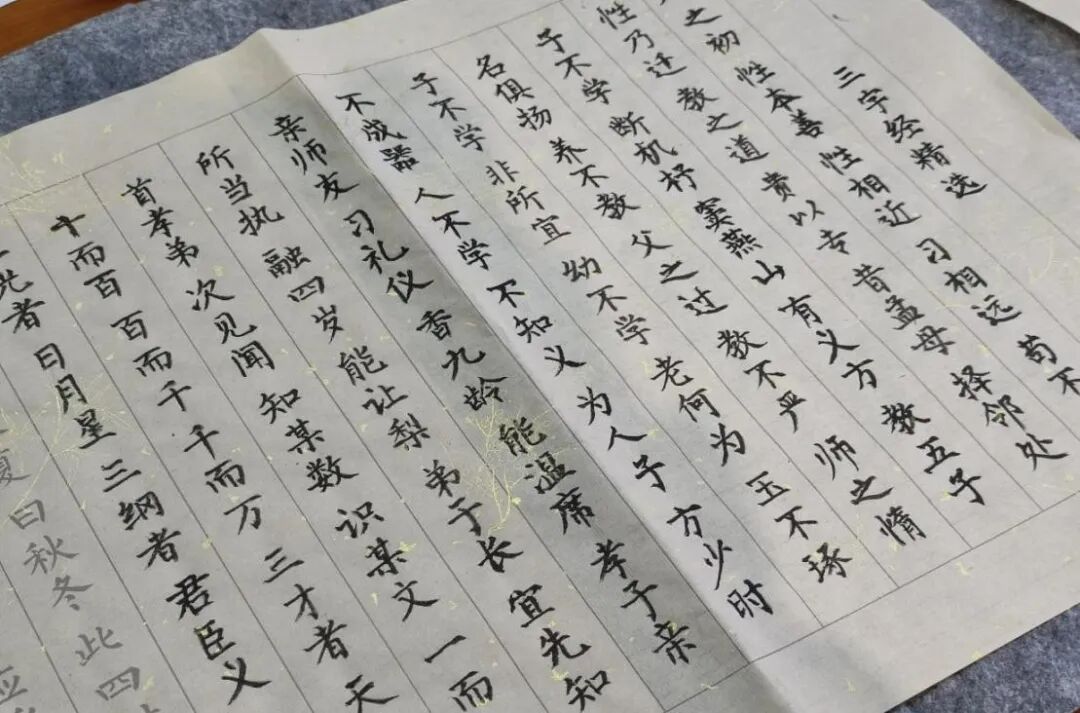 三字经精选
之初 性本善 性相近 习相远 苟不
性乃迁 教之道 贵以专 昔孟母 择邻处
子不学 断机杼 窦燕山 有义方 教五子
名俱扬 养不教 父之过 教不严 师之惰
子不学 非所宜 幼不学 老何为 玉不琢
不成器 人不学 不知义 为人子 方少时
亲师友 习礼仪 香九龄 能温席 孝子亲
所当执 融四岁 能让梨 弟于长 宜先知
首孝弟 次见闻 知某数 识某文 一而
十而百 百而千 千而万 三才者 天
光者 日月星 三纲者 君臣义
夏 曰秋冬 此四
应